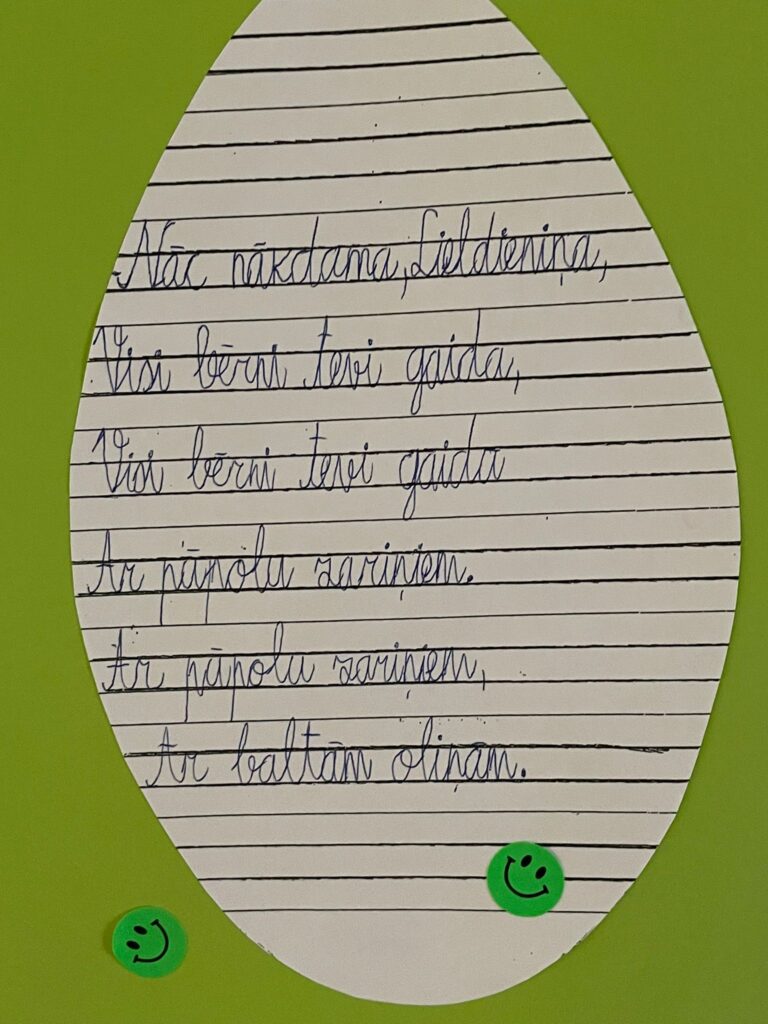 Nāc nākdama, Lieldieniņa,
Visi bērni tevi gaida,
Visi bērni tevi gaida
Ar pūpolu zariņiem.
Ar pūpolu zariņiem,
Ar baltām oliņām.